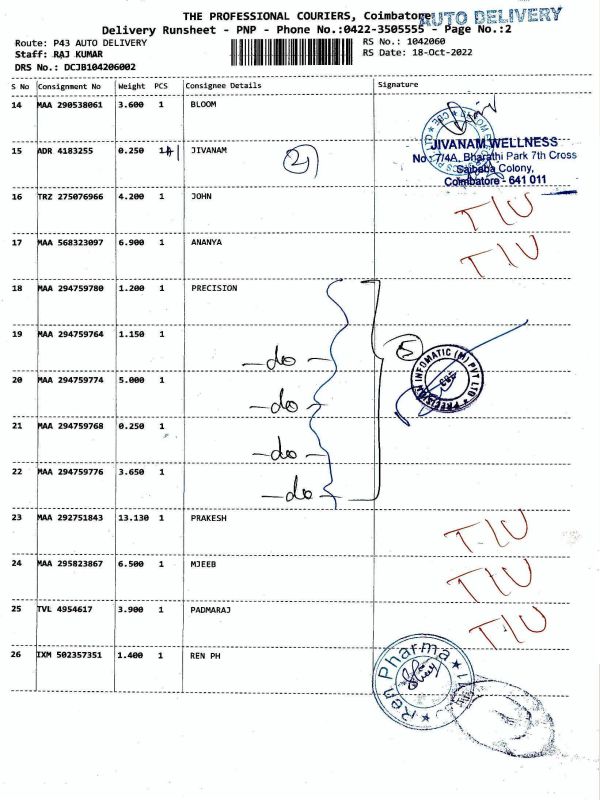 THE PROFESSIONAL COURIERS, Coimbatore
AUTO DELIVERY
Delivery Runsheet - PNP - Phone No.:0422-3505555 - Page No.:2
Route: P43 AUTO DELIVERY
RS No.: 1042060
Staff: RAJ KUMAR
RS Date: 18-Oct-2022
DRS No.: DCJB104206002
S No Consignment No Weight PCS Consignee Details Signature
14 MAA 290538061 3.600 1 BLOOM
15 ADR 4183255 0.250 1 JIVANAM 2)
JIVANAM WELLNESS
No.:7/4A, Bharathi Park 7th Cross
Saibaba Colony,
Coimbatore - 641 011
16 TRZ 275076966 4.200 1 JOHN T/U
17 MAA 568323097 6.900 1 ANANYA T/U
18 MAA 294759780 1.200 1 PRECISION
19 MAA 294759764 1.150 1
—do— 5
PRECISION INFOMATIC (M) PVT LTD
CBE
20 MAA 294759774 5.000 1
—do—
21 MAA 294759768 0.250 1
—do—
22 MAA 294759776 3.650 1
—do—
23 MAA 292751843 13.130 1 PRAKESH T/U
24 MAA 295823867 6.500 1 MJEEB T/U
25 TVL 4954617 3.900 1 PADMARAJ T/U
26 IXM 502357351 1.400 1 REN PH
Ren Pharma